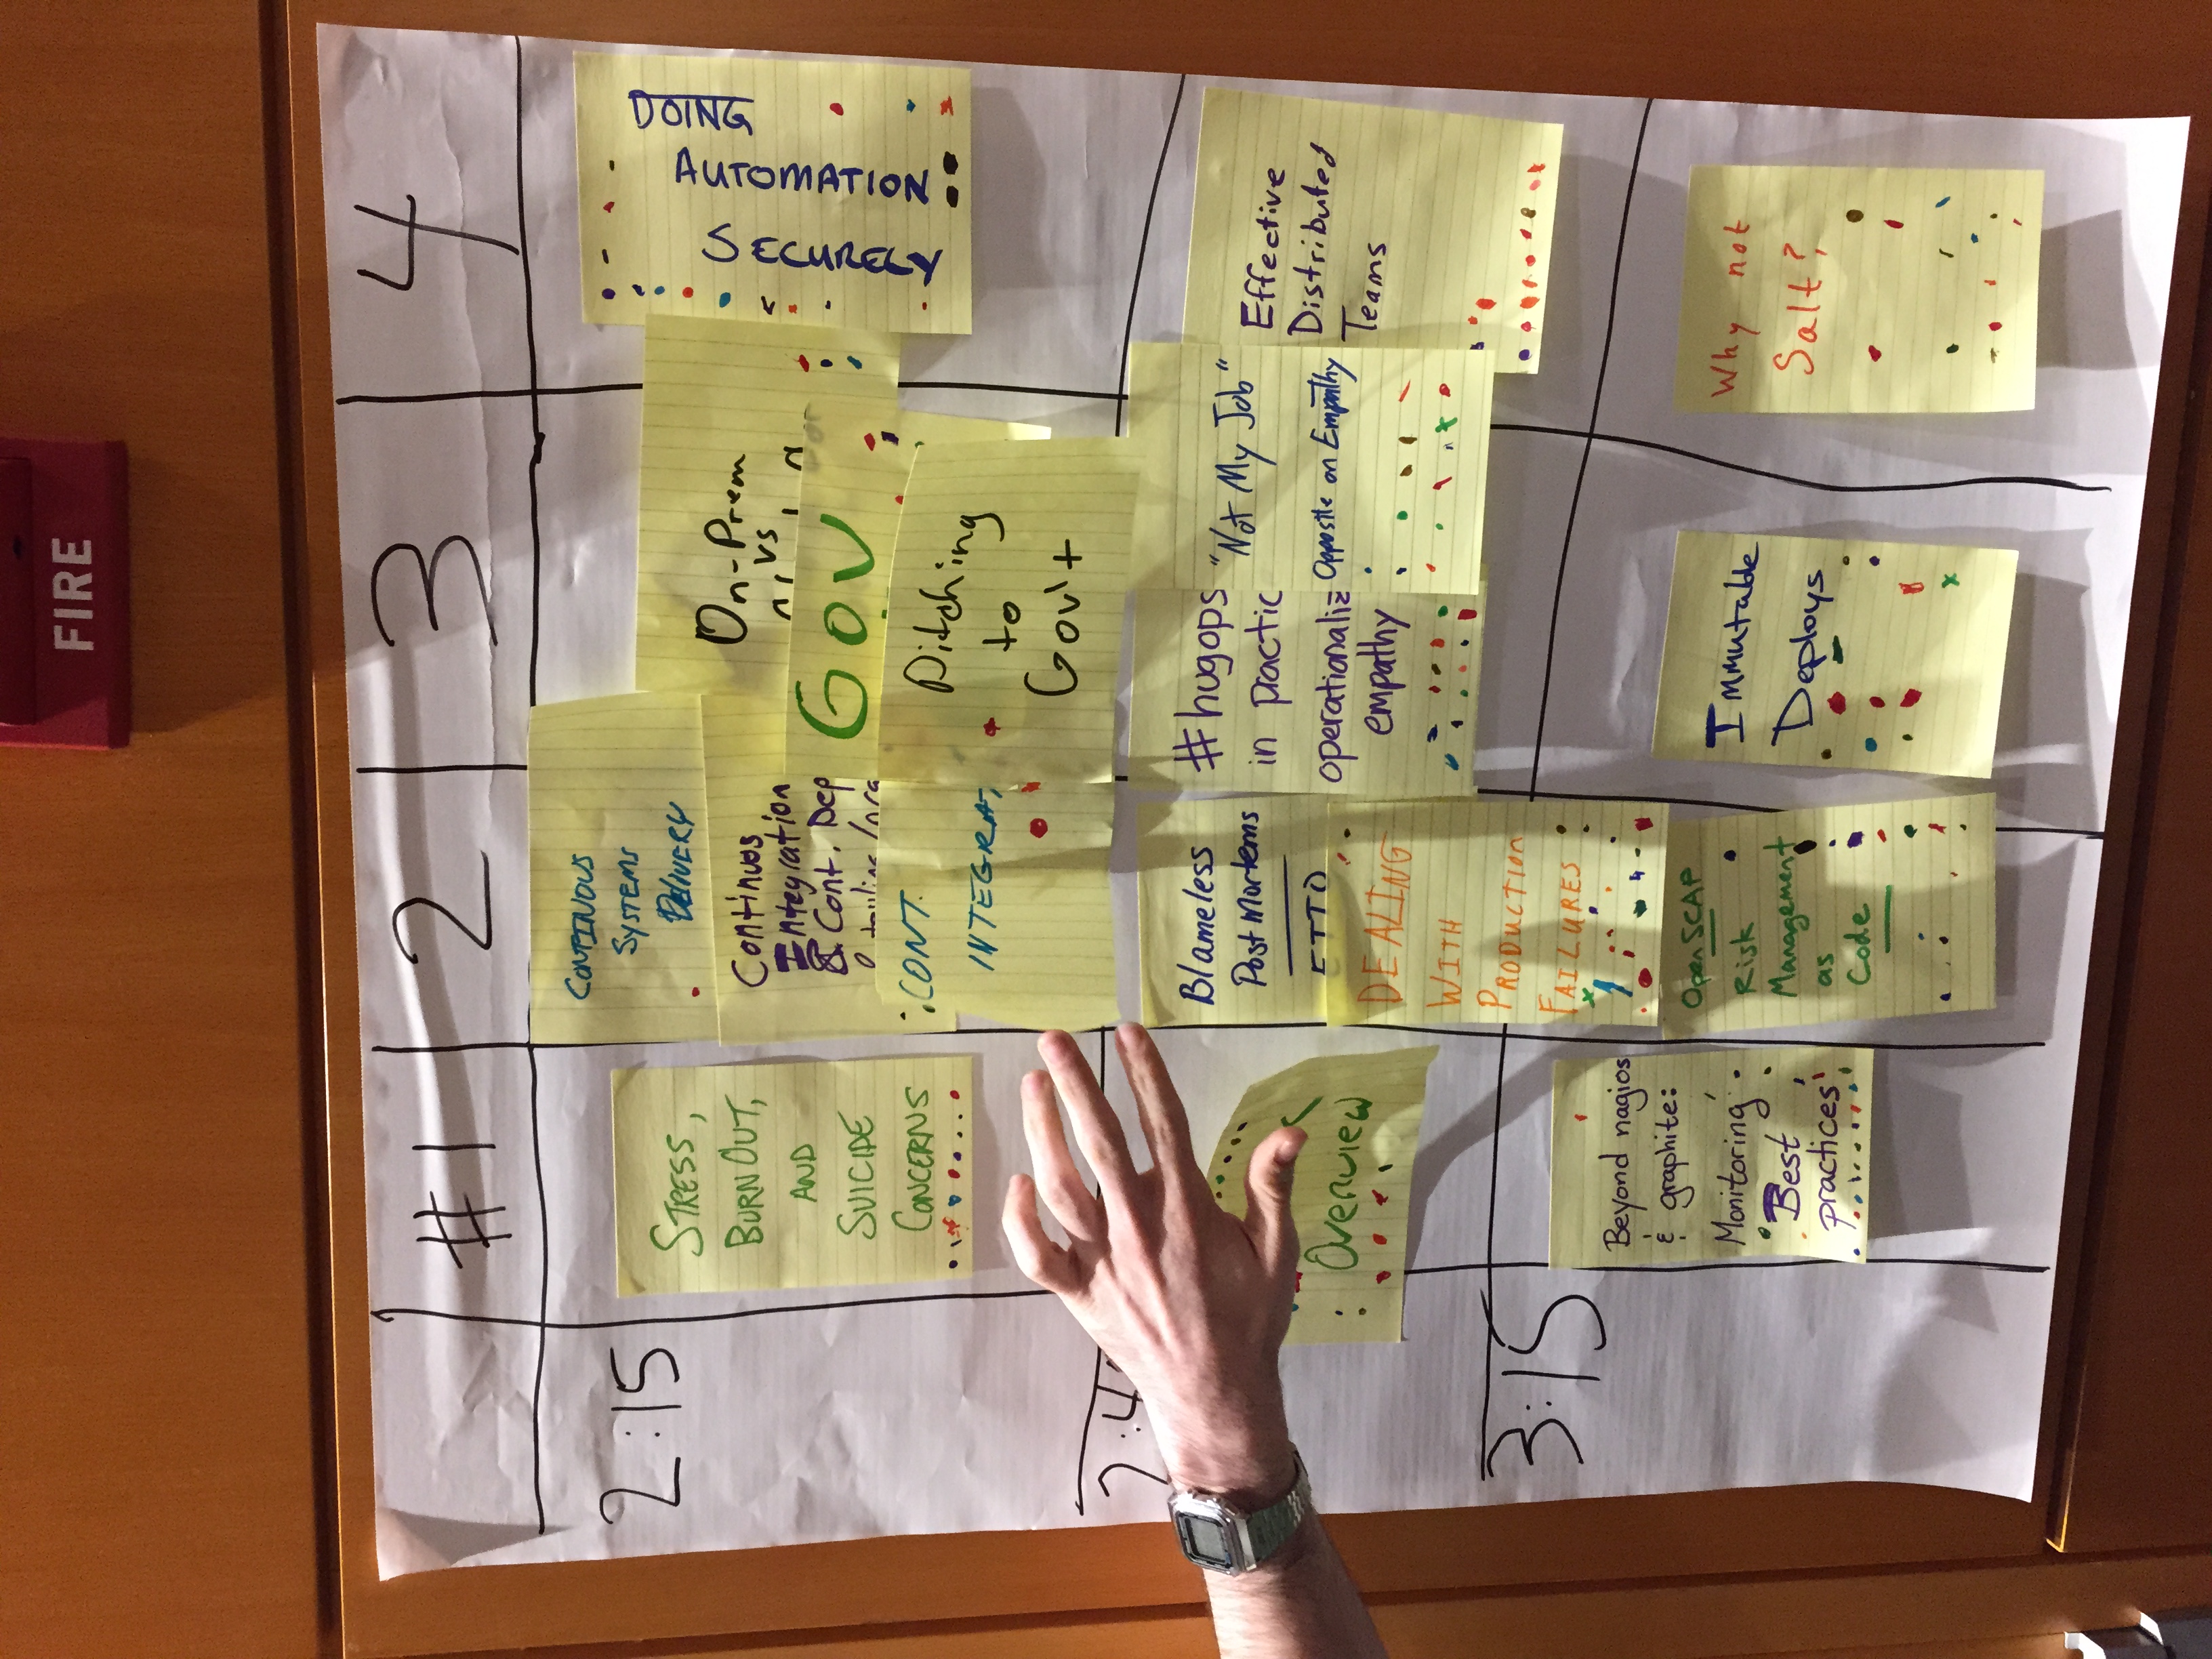 FIRE
#1
2
3
4
2:15
STRESS,
BURN OUT,
AND
SUICIDE
CONCERNS
CONTINOUS
SYSTEMS
DELIVERY
Continuos
Integration
& Cont. Dep
CONT.
INTEGRA
On-Prem
vs
GOV
Pitching
to
Gov't
DOING
AUTOMATION
SECURELY
2:4
Overview
Blameless
Post Mortems
ETTO
DEALING
WITH
PRODUCTION
FAILURES
#hugops
in practic
operationaliz
empathy
"Not My Job"
Opposite on Empathy
Effective
Distributed
Teams
3:15
Beyond nagios
& graphite:
Monitoring
Best
practices
OpenSCAP
Risk
Management
as
Code
Immutable
Deploys
Why not
Salt?